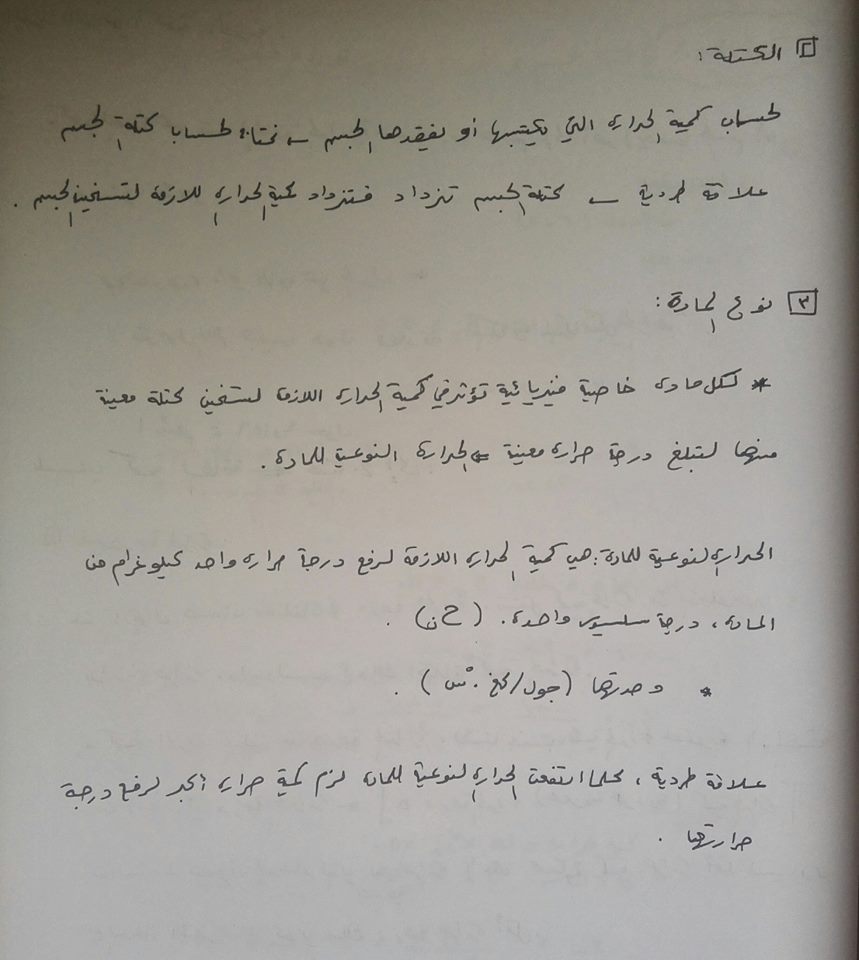 [٢] الكتلة :
لحساب كمية الحرارة التي يكتسبها أو يفقدها الجسم ← نحتاج لحساب كتلة الجسم
علاقة طردية ← كتلة الجسم تزداد فتزداد كمية الحرارة اللازمة لتسخين الجسم .
[٣] نوع المادة :
* لكل مادة خاصية فيزيائية تؤثر في كمية الحرارة اللازمة لتسخين كتلة معينة
منها لتبلغ درجة حرارة معينة ⇐ الحرارة النوعية للمادة .
الحرارة النوعية للمادة : هي كمية الحرارة اللازمة لرفع درجة حرارة واحد كيلوغرام من
المادة ، درجة سلسيوس واحدة . ( حن ) .
* وحدتها ( جول/كغ . °س ) .
علاقة طردية ، كلما ارتفعت الحرارة النوعية للمادة لزم كمية حرارة أكبر لرفع درجة
حرارتها .